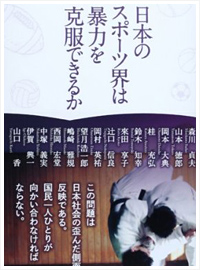 日本の
スポーツ界は
暴力を
克服できるか
森川貞夫
山本徳郎
岡本大典
鈴木知幸
桂 充弘
來田享子
辻口信良
岡村英祐
望月浩一郎
嶋崎雅規
西岡宏堂
中塚義実
伊賀興一
山口 香
この問題は
日本社会の歪んだ側面の
反映である。
国民一人ひとりが
向かい合わなければ
ならない。